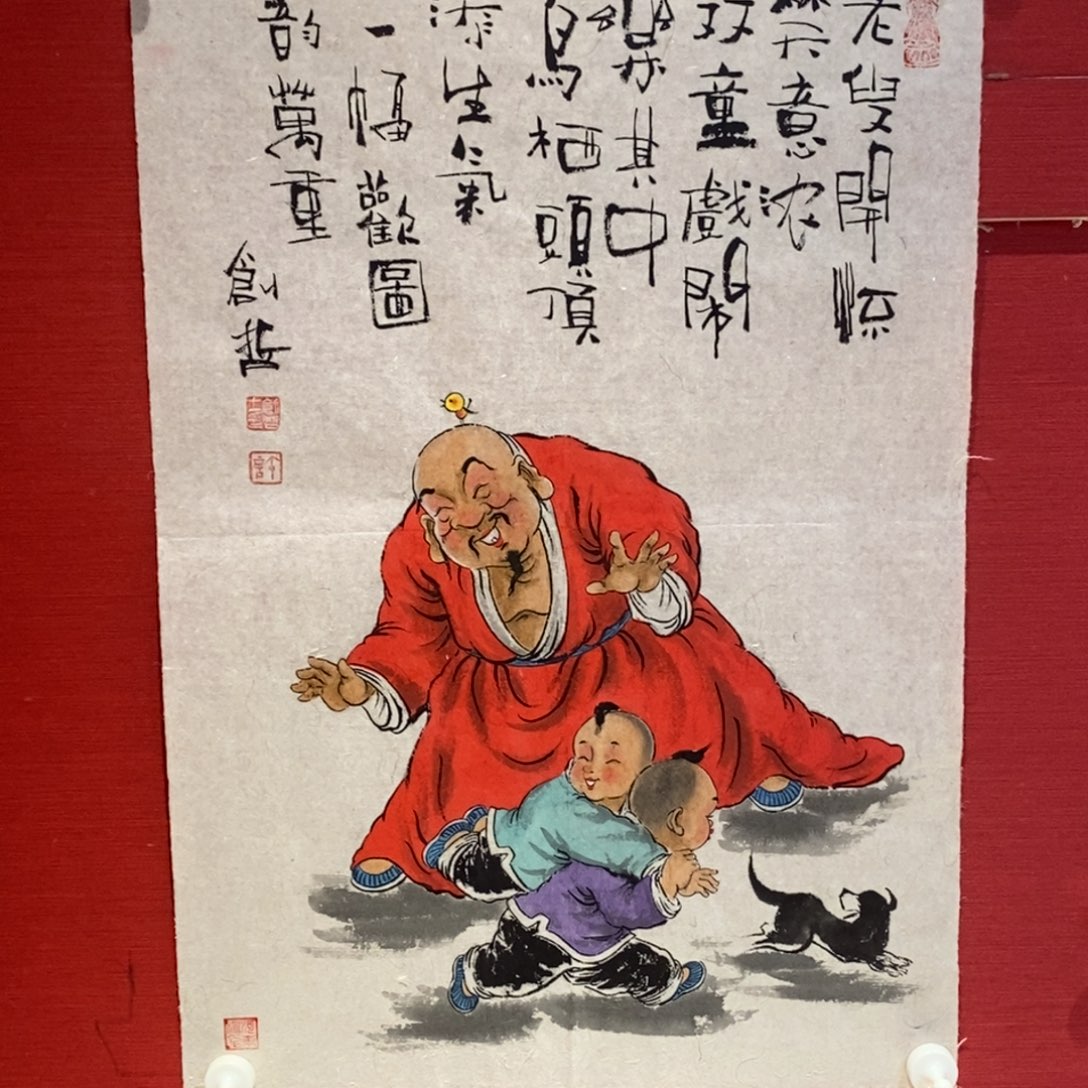 老叟開怀
樂意浓
牧童戲鬧
樂其中
鳥栖頭頂
添生氣
一幅歡圖
韵萬重
創哲